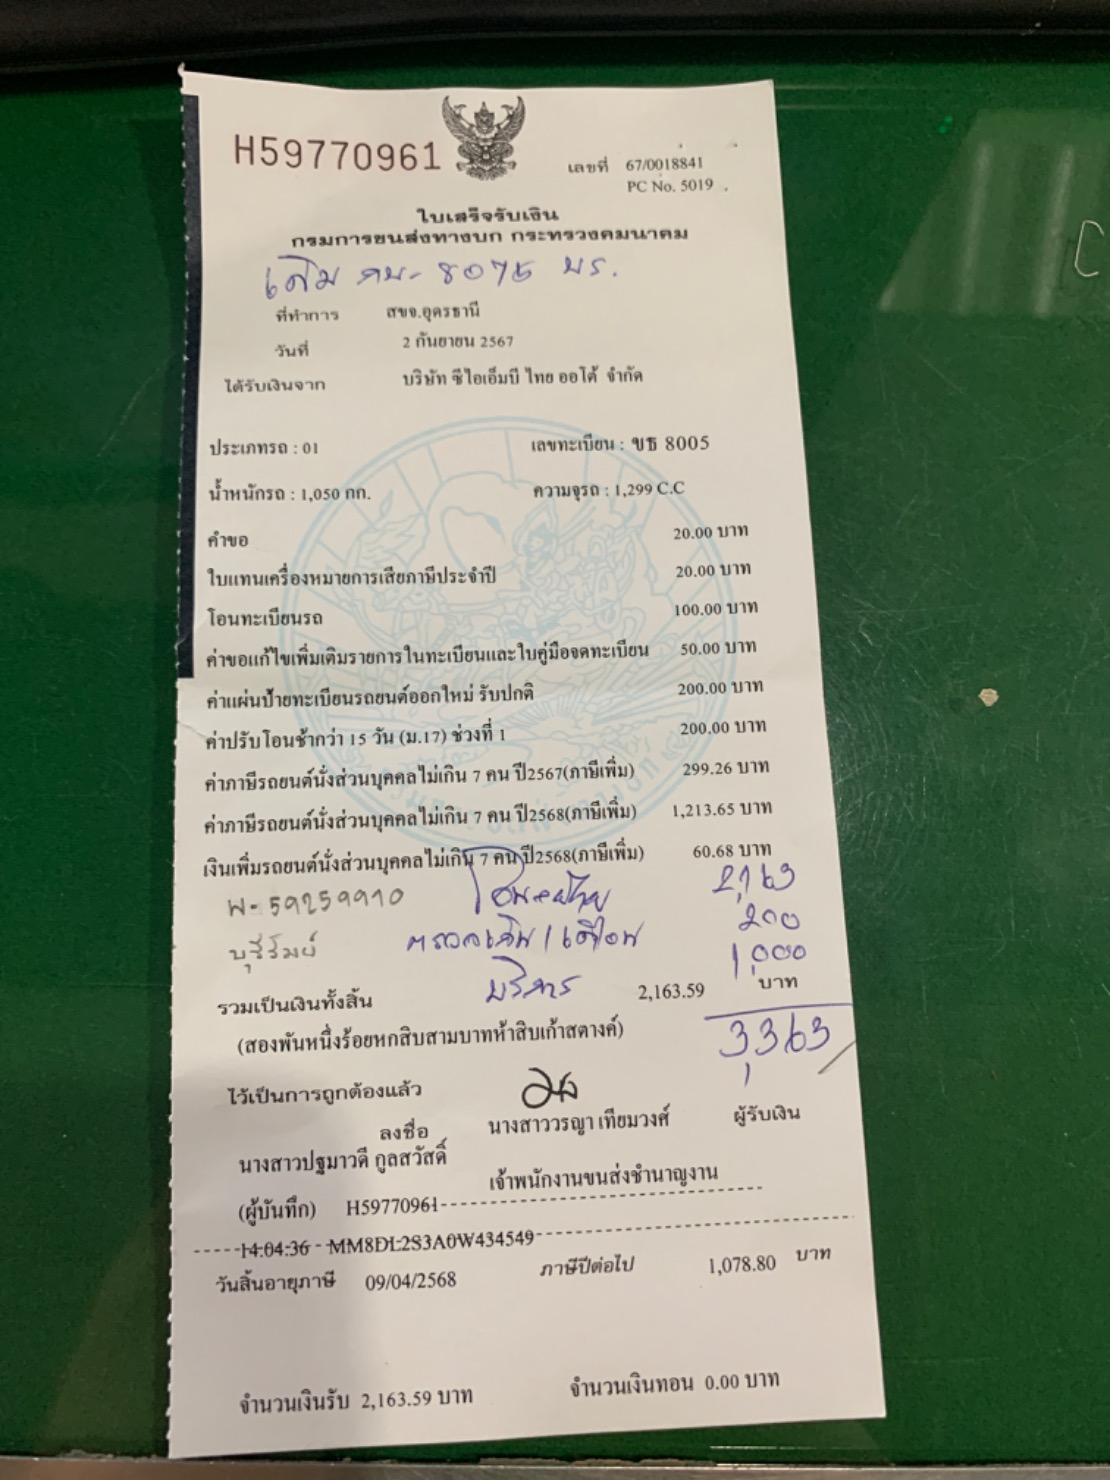 H59770961
เลขที่ 67/0018841
PC No. 5019
ใบเสร็จรับเงิน
กรมการขนส่งทางบก กระทรวงคมนาคม
เดิม 8075 บร.
ที่ทำการ สขจ.อุดรธานี
วันที่ 2 กันยายน 2567
ได้รับเงินจาก บริษัท ซีไอเอ็มบี ไทย ออโต้ จำกัด
ประเภทรถ : 01 เลขทะเบียน : ขธ 8005
น้ำหนักรถ : 1,050 กก. ความจุรถ : 1,299 C.C
คำขอ 20.00 บาท
ใบแทนเครื่องหมายการเสียภาษีประจำปี 20.00 บาท
โอนทะเบียนรถ 100.00 บาท
ค่าขอแก้ไขเพิ่มเติมรายการในทะเบียนและใบคู่มือจดทะเบียน 50.00 บาท
ค่าแผ่นป้ายทะเบียนรถยนต์ออกใหม่ รับปกติ 200.00 บาท
ค่าปรับโอนช้ากว่า 15 วัน (ม.17) ช่วงที่ 1 200.00 บาท
ค่าภาษีรถยนต์นั่งส่วนบุคคลไม่เกิน 7 คน ปี2567(ภาษีเพิ่ม) 299.26 บาท
ค่าภาษีรถยนต์นั่งส่วนบุคคลไม่เกิน 7 คน ปี2568(ภาษีเพิ่ม) 1,213.65 บาท
เงินเพิ่มรถยนต์นั่งส่วนบุคคลไม่เกิน 7 คน ปี2568(ภาษีเพิ่ม) 60.68 บาท
พ-59259910 2,163
บุรีรัมย์ 200
บริการ 1,000
รวมเป็นเงินทั้งสิ้น 2,163.59 บาท
(สองพันหนึ่งร้อยหกสิบสามบาทห้าสิบเก้าสตางค์) 3,363
ไว้เป็นการถูกต้องแล้ว
ลงชื่อ นางสาววรญา เทียมวงศ์ ผู้รับเงิน
นางสาวปฐมาวดี กูลสวัสดิ์ เจ้าพนักงานขนส่งชำนาญงาน
(ผู้บันทึก) H59770961
14:04:36 - MM8DL2S3A0W434549
วันสิ้นอายุภาษี 09/04/2568 ภาษีปีต่อไป 1,078.80 บาท
จำนวนเงินรับ 2,163.59 บาท จำนวนเงินทอน 0.00 บาท